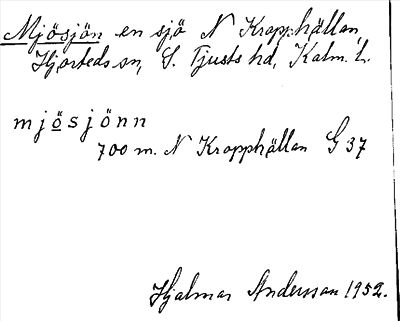 Mjösjön en sjö N Kropphällan,
Hjorteds sn, S. Tjusts hd, Kalm. l.
mjösjönn
700 m. N Kropphällan G 37
Hjalmar Andersson 1952.